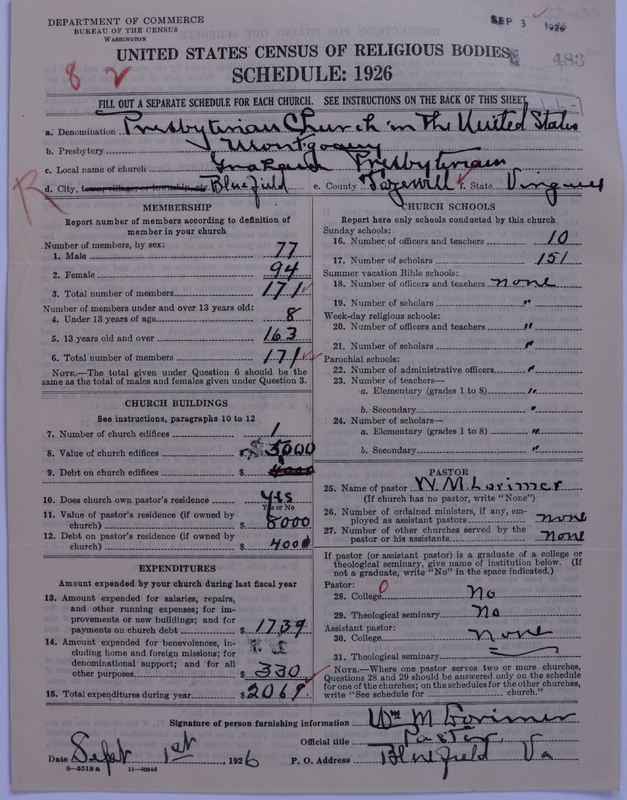 DEPARTMENT OF COMMERCE
BUREAU OF THE CENSUS
WASHINGTON
SEP 3 1926
UNITED STATES CENSUS OF RELIGIOUS BODIES
483
8 2
SCHEDULE: 1926
FILL OUT A SEPARATE SCHEDULE FOR EACH CHURCH. SEE INSTRUCTIONS ON THE BACK OF THIS SHEET
a. Denomination Presbyterian Church in The United States
b. Presbytery Montgomery
c. Local name of church Graham Presbyterian
R
d. City, town, village, or township, etc Bluefield e. County Tazewell f. State Virginia
MEMBERSHIP
Report number of members according to definition of
member in your church
Number of members, by sex:
1. Male 77
2. Female 94
3. Total number of members 171
Number of members under and over 13 years old:
4. Under 13 years of age 8
5. 13 years old and over 163
6. Total number of members 171
NOTE.—The total given under Question 6 should be the
same as the total of males and females given under Question 3.
CHURCH BUILDINGS
See instructions, paragraphs 10 to 12
7. Number of church edifices 1
8. Value of church edifices $ 5000
9. Debt on church edifices $
10. Does church own pastor's residence yes
Yes or No
11. Value of pastor's residence (if owned by
church) $ 8000
12. Debt on pastor's residence (if owned by
church) $ 4000
EXPENDITURES
Amount expended by your church during last fiscal year
13. Amount expended for salaries, repairs,
and other running expenses; for im-
provements or new buildings; and for
payments on church debt $ 1739
14. Amount expended for benevolences, in-
cluding home and foreign missions; for
denominational support; and for all
other purposes $ 330
15. Total expenditures during year $ 2069
CHURCH SCHOOLS
Report here only schools conducted by this church
Sunday schools:
16. Number of officers and teachers 10
17. Number of scholars 151
Summer vacation Bible schools:
18. Number of officers and teachers none
19. Number of scholars "
Week-day religious schools:
20. Number of officers and teachers "
21. Number of scholars "
Parochial schools:
22. Number of administrative officers "
23. Number of teachers—
a. Elementary (grades 1 to 8) "
b. Secondary "
24. Number of scholars—
a. Elementary (grades 1 to 8) "
b. Secondary "
PASTOR
25. Name of pastor W. M. Lorimer
(If church has no pastor, write "None")
26. Number of ordained ministers, if any, em-
ployed as assistant pastors none
27. Number of other churches served by the
pastor or his assistants none
If pastor (or assistant pastor) is a graduate of a college or
theological seminary, give name of institution below. (If
not a graduate, write "No" in the space indicated.)
Pastor:
28. College 0 No
29. Theological seminary No
Assistant pastor:
30. College None
31. Theological seminary
NOTE.—Where one pastor serves two or more churches,
Questions 28 and 29 should be answered only on the schedule
for one of the churches; on the schedules for the other churches,
write "See schedule for church."
Signature of person furnishing information Wm M Lorimer
Official title Pastor
Date Sept 1st, 1926 P. O. Address Bluefield Va
8-5518a 11-9064d